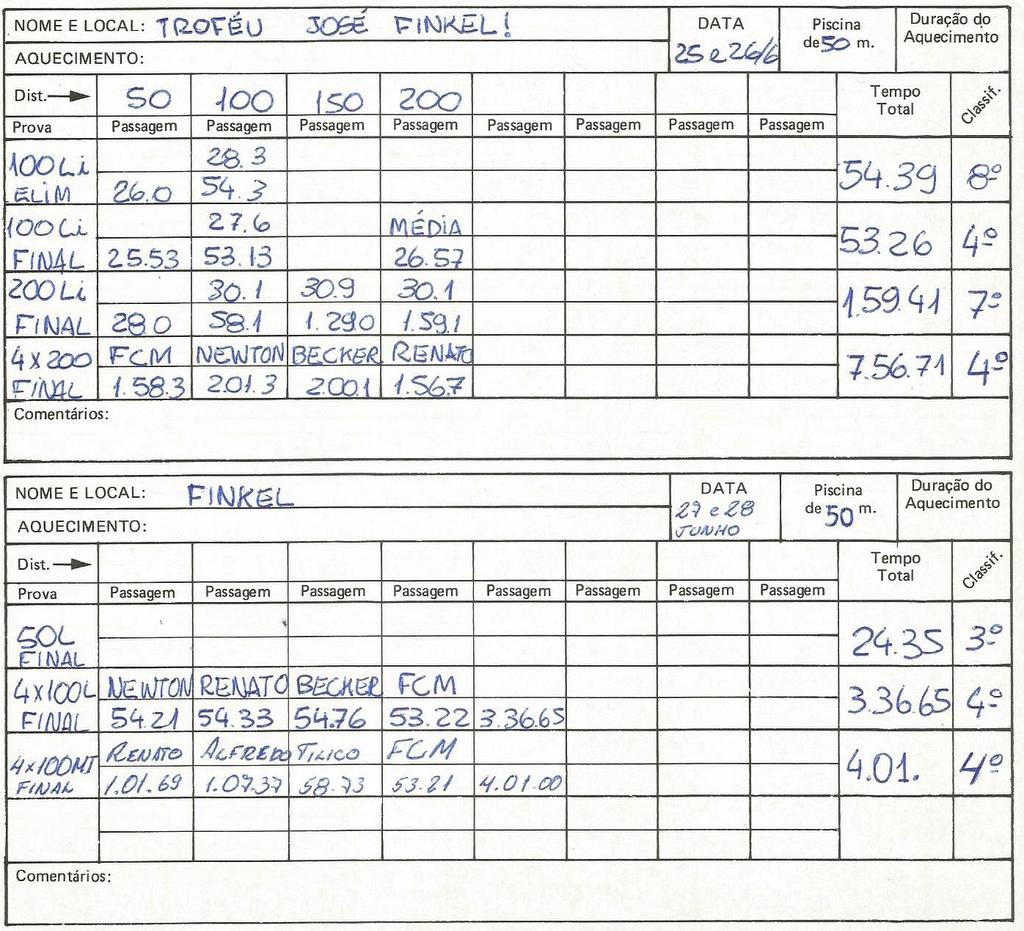 NOME E LOCAL: TROFÉU JOSÉ FINKEL! DATA 25 e 26/6 Piscina de 50 m. Duração do Aquecimento
AQUECIMENTO:
Dist. → 50 100 150 200 Tempo Total Classif.
Prova Passagem Passagem Passagem Passagem Passagem Passagem Passagem Passagem
100 Li 28.3
ELIM 26.0 54.3 54.39 8º
100 Li 27.6 MÉDIA
FINAL 25.53 53.13 26.57 53.26 4º
200 Li 30.1 30.9 30.1
FINAL 28.0 58.1 1.29.0 1.59.1 1.59.41 7º
4x200 FCM NEWTON BECKER RENATO
FINAL 1.58.3 2.01.3 2.00.1 1.56.7 7.56.71 4º
Comentários:
NOME E LOCAL: FINKEL DATA 27 e 28 JUNHO Piscina de 50 m. Duração do Aquecimento
AQUECIMENTO:
Dist. → Tempo Total Classif.
Prova Passagem Passagem Passagem Passagem Passagem Passagem Passagem Passagem
50L
FINAL 24.35 3º
4x100L NEWTON RENATO BECKER FCM
FINAL 54.21 54.33 54.76 53.22 3.36.65 3.36.65 4º
4x100MI RENATO ALFREDO TILICO FCM
FINAL 1.01.69 1.07.37 58.73 53.21 4.01.00 4.01. 4º
Comentários: